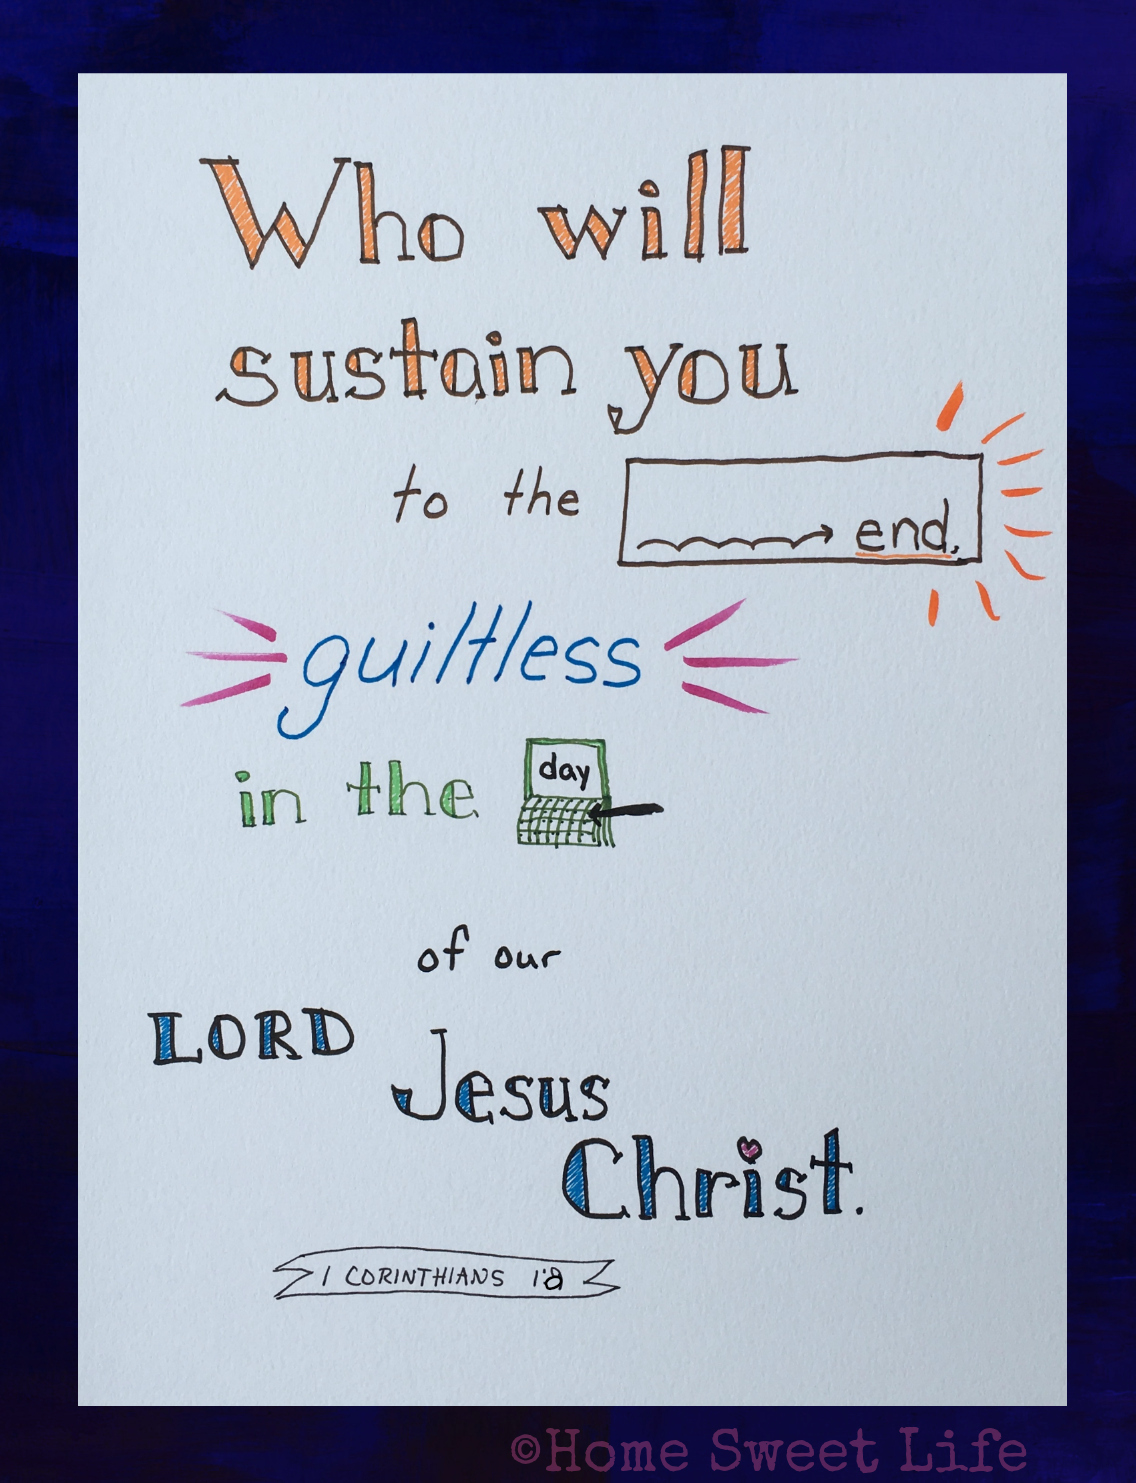 Who will
sustain you
to the end,
guiltless
in the day
of our
LORD
Jesus
Christ.
1 CORINTHIANS 1:8
©Home Sweet Life